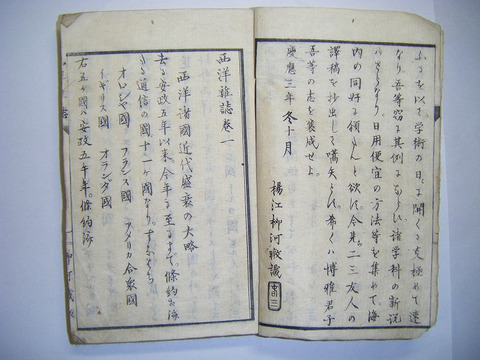 ふるを以て學術の日に開くる支極めて速
なり吾等竊に其例にならひ諸学科の新説
ハさらなり日用便宜の方法等を集めて海
内の同好に頒たんと欲に今先二三友人の
譯稿を抄出して嚆矢とす希くハ博雅君子
吾等の志を襄成せよ
慶應三年 冬十月
楊江 柳河 識
西洋雜誌卷一
西洋諸國近代盛衰の大略
去る安政五年以来今年に至るまで條約を済
たる通信の國十一ヶ國なりすなはち
オロシヤ國 フランス國 アメリカ合衆國
イギリス國 オランダ國
右五ヶ國ハ安政五午年條約済